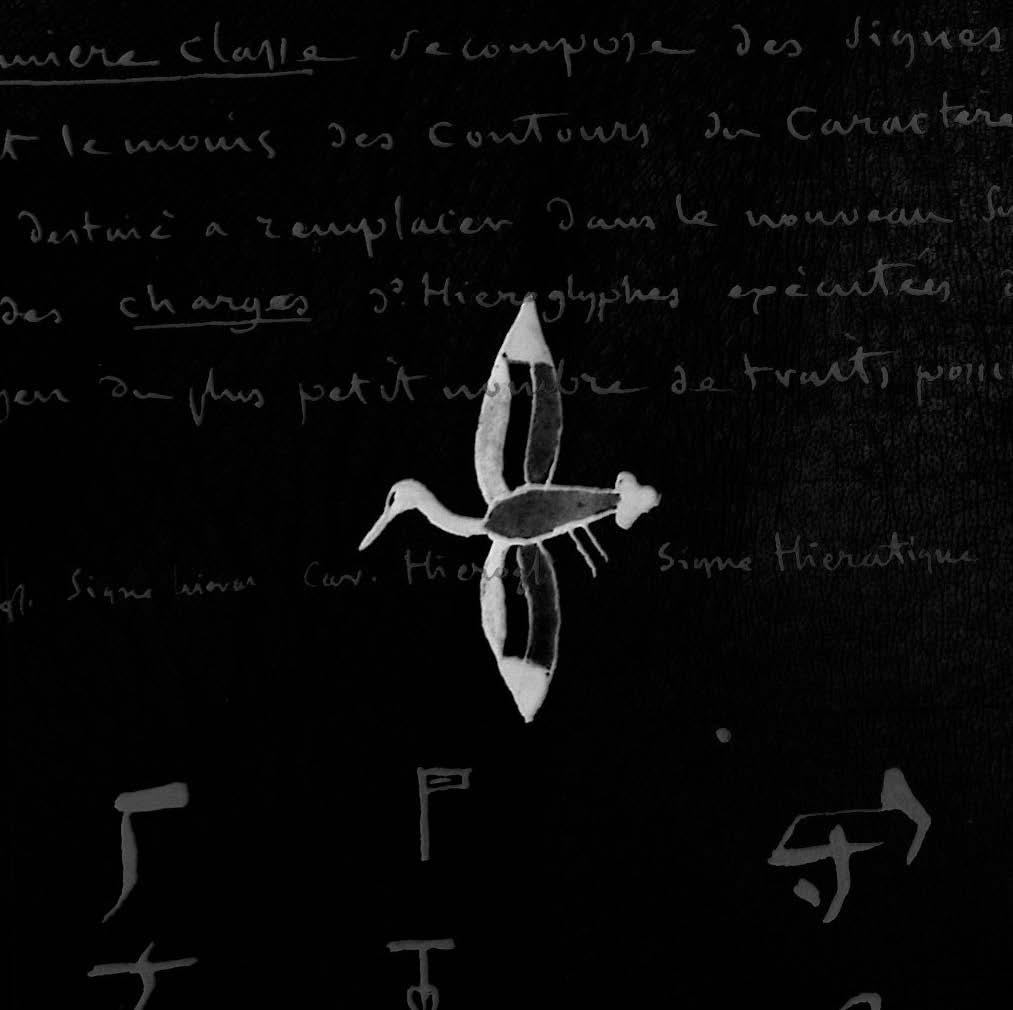 miere classe se compose des signes
t le moins des contours du Caractere
destiné a remplacer dans le nouveau
des charges d'Hieroglyphes exécutées
yen du plus petit nombre de traits
Signe hierat Car. Hierogl Signe Hieratique